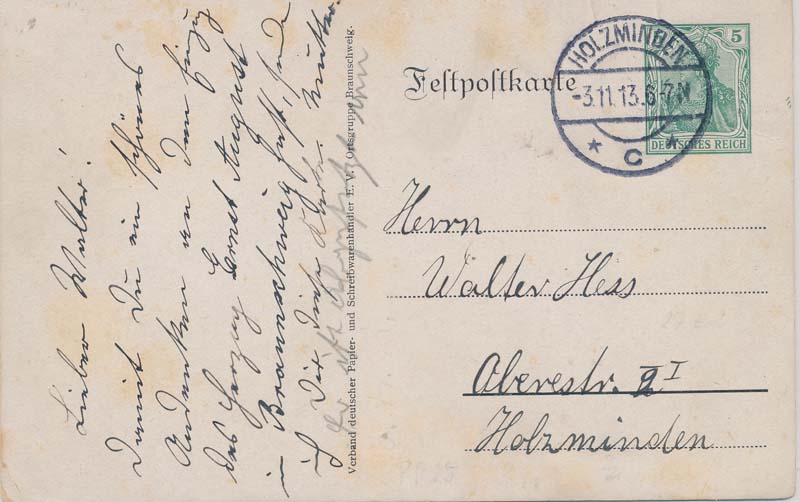 Lieber Walter!
Damit Du ein schönes
Andenken an den Einzug
des Herzog Ernst August
in Braunschweig hast, sende
ich Dir diese Karte. Mutter.
Verband deutscher Papier- und Schreibwarenhändler E. V. Ortsgruppe Braunschweig.
Festpostkarte
HOLZMINDEN
-3.11.13.6-7N
* c *
5
DEUTSCHES REICH
Herrn
Walter Hess
Oberestr. 2 I
Holzminden